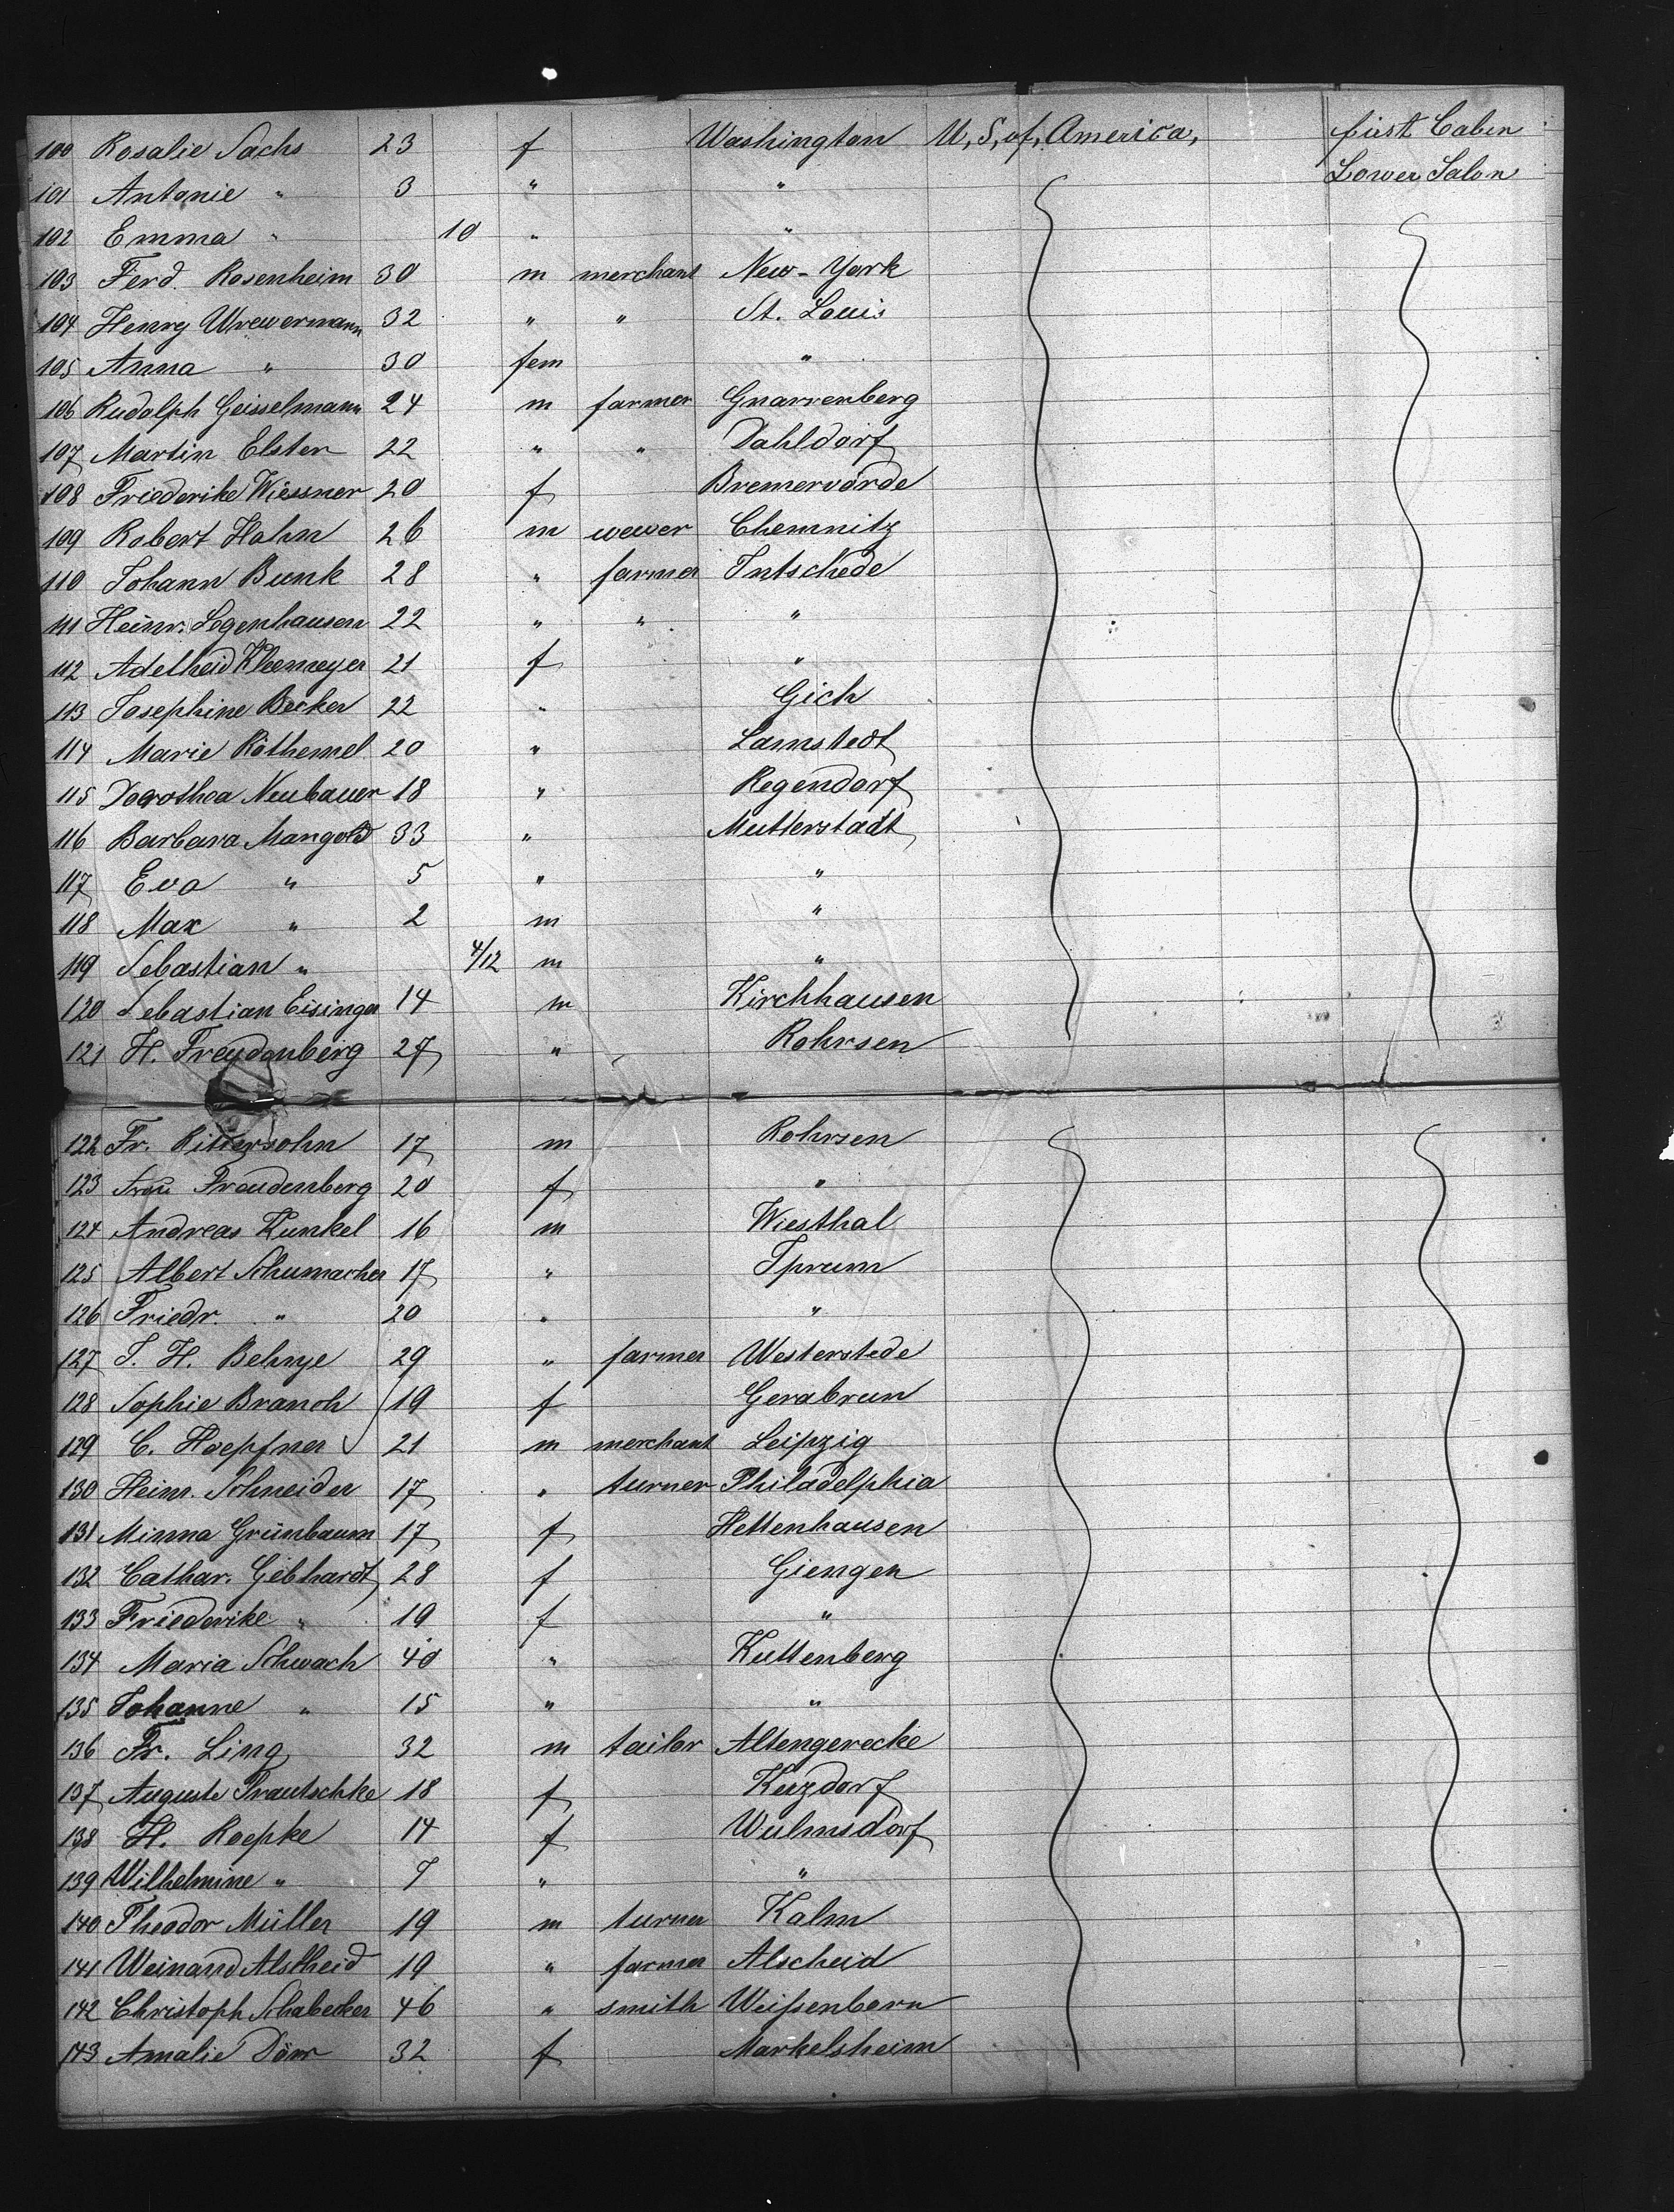 100 Rosalie Sachs 23 f Washington U, S, of, America, first Cabin
Lower Salon
101 Antonie " 3 " "
102 Emma " 10 " "
103 Ferd. Rosenheim 30 m merchant New-York
104 Henry Wrewermann 32 " " St. Louis
105 Anna " 30 fem "
106 Rudolph Geisselmann 24 m farmer Gnarrenberg
107 Martin Elster 22 " " Dahldorf
108 Friederike Wiessner 20 f Bremervörde
109 Robert Hahn 26 m wewer Chemnitz
110 Johann Bunk 28 " farmer Intschede
111 Heinr. Segenhausen 22 " " "
112 Adelheid Kleemeyer 21 f "
113 Josephine Becker 22 " Gich
114 Marie Röthemel 20 " Lamstedt
115 Dorothea Neubauer 18 " Regendorf
116 Barbara Mangold 33 " Mutterstadt
117 Eva " 5 " "
118 Max " 2 m "
119 Sebastian " 4/12 m "
120 Sebastian Eisinger 14 m Kirchhausen
121 H. Freudenberg 27 " Rohrsen
122 Fr. Rittersohn 17 m Rohrsen
123 Frau Freudenberg 20 f "
124 Andreas Kunkel 16 m Wiesthal
125 Albert Schumacher 17 " Iprum
126 Friedr. " 20 " "
127 J. H. Behnje 29 " farmer Westerstede
128 Sophie Branch 19 f Gerabrun
129 C. Hoepfner 21 m merchant Leipzig
130 Heinr. Schneider 17 " turner Philadelphia
131 Minna Grünbaum 17 f Hettenhausen
132 Cathar. Gebhardt 28 f Giengen
133 Friederike " 19 f "
134 Maria Schwach 40 " Kuttenberg
135 Johanne " 15 " "
136 Fr. Ling 32 m tailor Altengerecke
137 Auguste Trautschke 18 f Kuzdorf
138 H. Roepke 14 f Wulmsdorf
139 Wilhelmine " 9 " "
140 Theodor Müller 19 m turner Kalm
141 Weinand Alstheid 19 " farmer Alscheid
142 Christoph Schabecker 46 " smith Weissenborn
143 Amalie Dörr 32 f Markelsheim